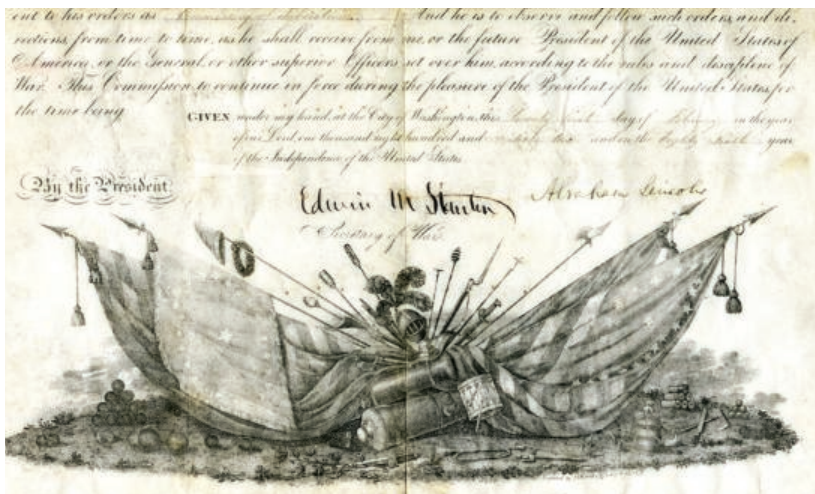 out to his orders as Commissary of Subsistence. And he is to observe and follow such orders, and di-
rections, from time to time, as he shall receive from me, or the future President of the United States of
America, or the General, or other superior Officers set over him, according to the rules and discipline of
War. This Commission to continue in force during the pleasure of the President of the United States, for
the time being.
GIVEN under my hand, at the City of Washington, this day of in the year
of our Lord, one thousand eight hundred and sixty two and in the Eighty sixth year
of the Independence of the United States.
By the President
Abraham Lincoln
Edwin M Stanton
Secretary of War.